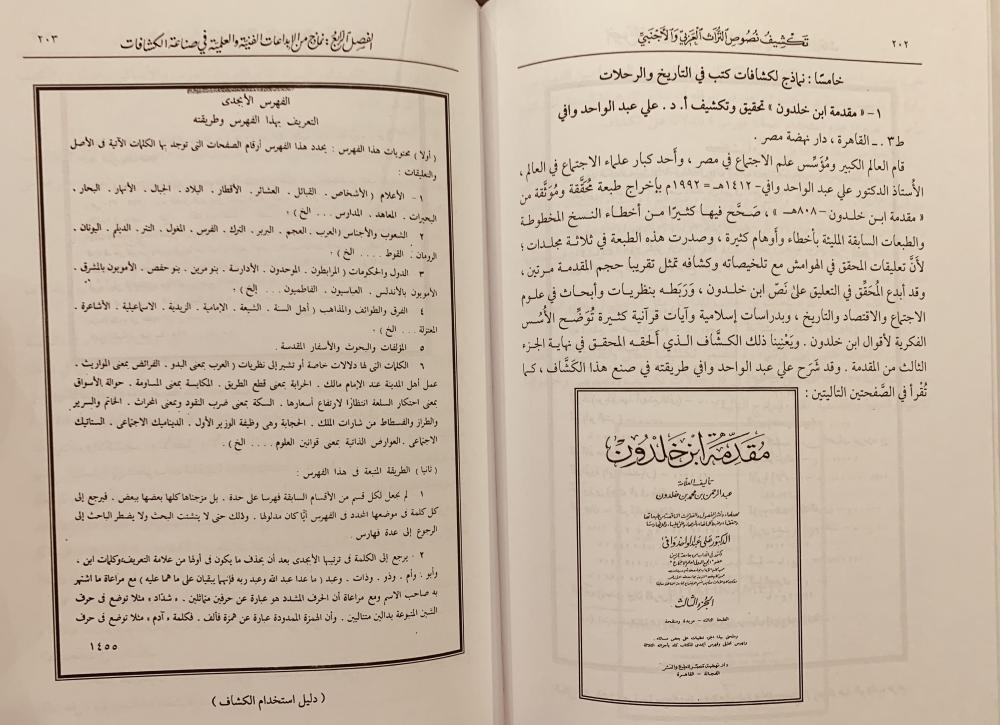 ٢٠٢
تكشيف نصوص التراث العربي والأجنبي
خامسًا : نماذج لكشافات كتب في التاريخ والرحلات
١ - « مقدمة ابن خلدون » تحقيق وتكشيف أ. د. علي عبد الواحد وافي
ط٣ . ـ القاهرة ، دار نهضة مصر .
قام العالم الكبير ومُؤَسِّس علم الاجتماع في مصر ، وأحد كبار علماء الاجتماع في العالم ،
الأُستاذ الدكتور علي عبد الواحد وافي-١٤١٢هـ = ١٩٩٢م بإخراج طبعة مُحَقَّقة ومُوَثَّقة من
« مقدمة ابن خلدون -٨٠٨هـ » ، صَحَّح فيها كثيرًا من أخطاء النسخ المخطوطة
والطبعات السابقة المليئة بأخطاء وأوهام كثيرة ، وصدرت هذه الطبعة في ثلاثة مجلدات ؛
لأَنَّ تعليقات المحقق في الهوامش مع تلخيصاته وكشافه تمثل تقريبا حجم المقدمة مرتين ،
وقد أبدع المُحَقِّق في التعليق علىٰ نَصّ ابن خلدون ، وَرَبَطَه بنظريات وأبحاث في علوم
الاجتماع والاقتصاد والتاريخ ، وبدراسات إسلامية وآيات قرآنية كثيرة تُوَضِّح الأُسُس
الفكرية لأقوال ابن خلدون . ويَعْنِينا ذلك الكشَّاف الذي ألحقه المحقق في نهاية الجزء
الثالث من المقدمة . وقد شَرَح علي عبد الواحد وافي طريقته في صنع هذا الكَشَّاف ، كما
تُقْرأ في الصَّفحتين التاليتين :
مقدمة ابن خلدون
تأليف العلامة
عبد الرحمن بن محمد بن خلدون
الدكتور علي عبد الواحد وافي
الجزء الثالث
الطبعة الثالثة - مزيدة ومنقحة
دار نهضة مصر للطبع والنشر
الفجالة - القاهرة
الفصل الرابع : نماذج من الإبداعات الفنية والعلمية في صناعة الكشافات
٢٠٣
الفهرس الأبجدى
التعريف بهذا الفهرس وطريقته
( أولا ) محتويات هذا الفهرس : يحدد هذا الفهرس أرقام الصفحات التى توجد بها الكلمات الآتية فى الأصل
والتعليقات :
١ - الأعلام ( الأشخاص . القبائل . العشائر . الأقطار . البلاد . الجبال . الأنهار . البحار .
البحيرات . المعاهد . المدارس ... الخ ) ؛
٢ الشعوب والأجناس ( العرب . العجم . البربر . الترك . الفرس . المغول . التتر . الديلم . اليونان .
الرومان . القوط .... الخ ) ؛
٣ الدول والحكومات ( المرابطون . الموحدون . الأدارسة . بنو مرين . بنو حفص . الأمويون بالمشرق .
الأمويون بالأندلس . العباسيون . الفاطميون .... الخ ) ؛
٤ الفرق والطوائف والمذاهب ( أهل السنة . الشيعة . الإمامية . الزيدية . الاسماعيلية . الأشاعرة .
المعتزلة ... الخ ) ؛
٥ المؤلفات والبحوث والأسفار المقدسة .
٦ الكلمات التى لها دلالات خاصة أو تشير إلى نظريات ( العرب بمعنى البدو . الفرائض بمعنى المواريث .
عمل أهل المدينة عند الإمام مالك . الحرابة بمعنى قطع الطريق . المكايسة بمعنى المساومة . حوالة الأسواق
بمعنى احتكار السلعة انتظارًا لارتفاع أسعارها . السكة بمعنى ضرب النقود وبمعنى المحراث . الخاتم والسرير
والطراز والفسطاط من شارات الملك . الحجابة وهى وظيفة الوزير الأول . الديناميك الاجتماعى . الستاتيك
الاجتماعى . العوارض الذاتية بمعنى قوانين العلوم .... الخ ) .
( ثانيا ) الطريقة المتبعة فى هذا الفهرس :
١ لم نجعل لكل قسم من الأقسام السابقة فهرسا على حدة . بل مزجناها كلها بعضها ببعض . فيرجع إلى
كل كلمة فى موضعها المحدد فى الفهرس أيًا كان مدلولها . وذلك حتى لا يتشتت البحث ولا يضطر الباحث إلى
الرجوع إلى عدة فهارس .
٢ . يرجع إلى الكلمة فى ترتيبها الأبجدى بعد أن يحذف ما يكون فى أولها من علامة التعريف وكلمات ابن ،
وأبو ، وأم ، وذو ، وذات . وعبد ( ما عدا عبد الله وعبد ربه فإنهما يبقيان على ما هما عليه ) مع مراعاة ما اشتهر
به صاحب الاسم ومع مراعاة أن الحرف المشدد هو عبارة عن حرفين متماثلين . « شدّاد » مثلا توضع فى حرف
الشين المتبوعة بدالين متتاليين . وأن الهمزة الممدودة عبارة عن همزة فألف . فكلمة « آدم » مثلا توضع فى حرف
١٤٥٥
( دليل استخدام الكشاف )